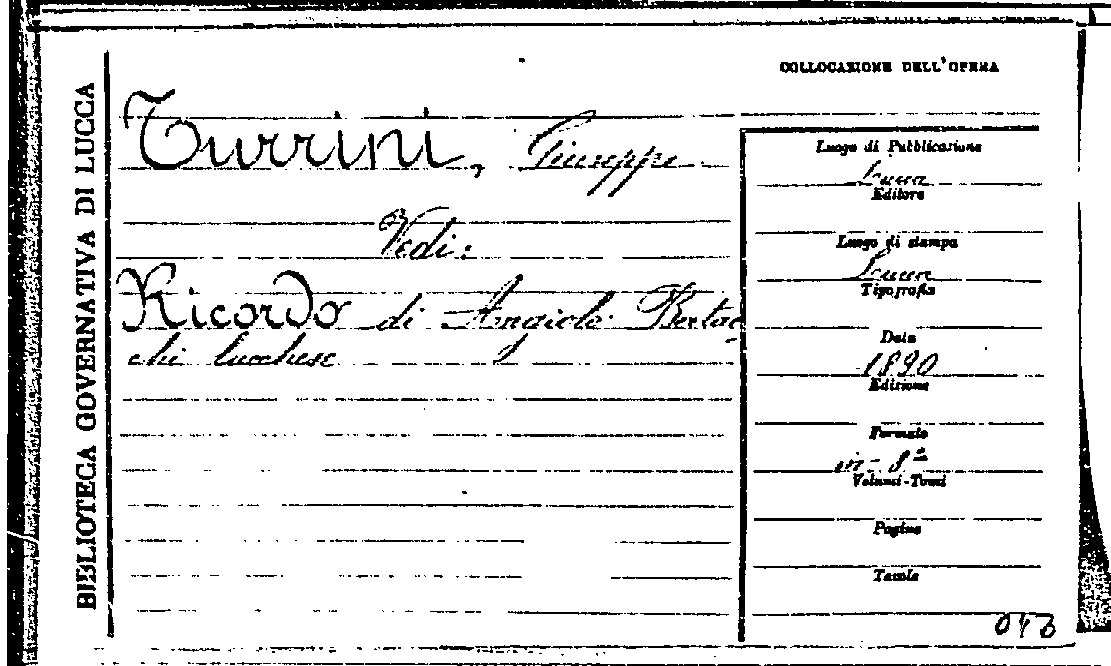 BIBLIOTECA GOVERNATIVA DI LUCCA
COLLOCAZIONE DELL'OPERA
Turrini, Giuseppe
Vedi:
Ricordo di Angiolo Bertac
chi lucchese
Luogo di Pubblicazione
Lucca
Editore
Luogo di stampa
Lucca
Tipografia
Data
1890
Edizione
Formato
in-8º
Volumi-Tomi
Pagine
Tavole